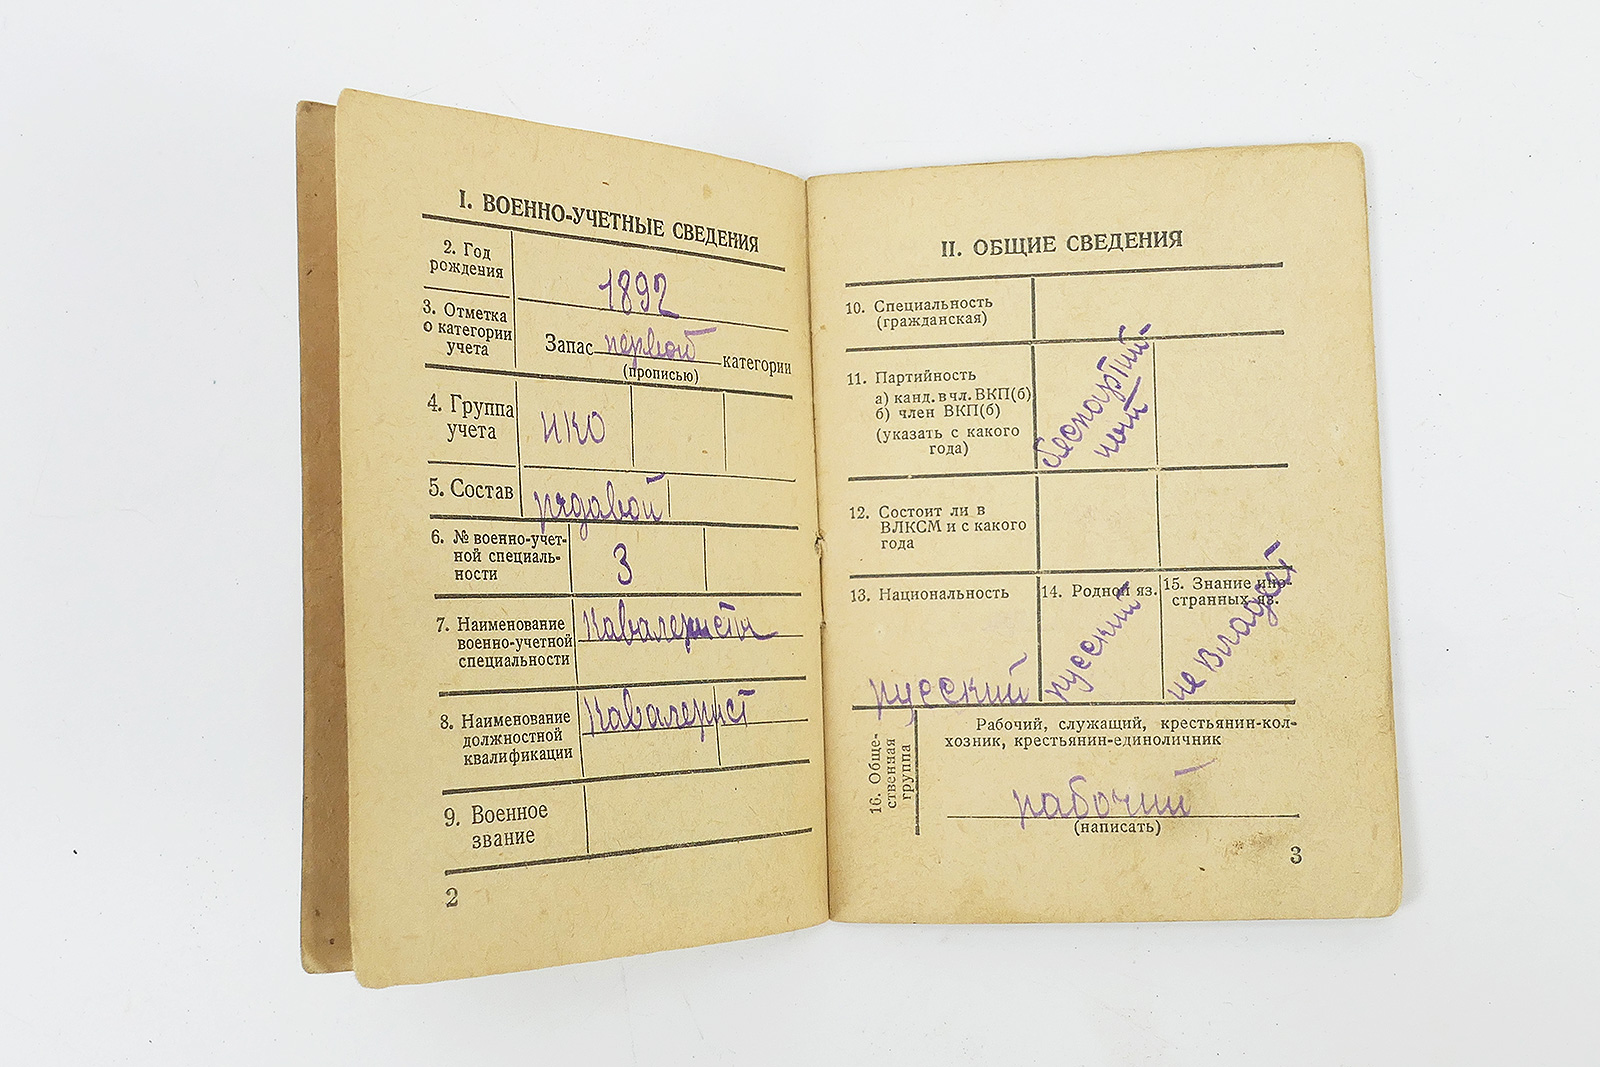 I. ВОЕННО-УЧЕТНЫЕ СВЕДЕНИЯ
2. Год
рождения
1892
3. Отметка
о категории
учета
Запас первой категории
(прописью)
4. Группа
учета
НКО
5. Состав
рядовой
6. № военно-учет-
ной специаль-
ности
3
7. Наименование
военно-учетной
специальности
Кавалериста
8. Наименование
должностной
квалификации
Кавалерист
9. Военное
звание
2
II. ОБЩИЕ СВЕДЕНИЯ
10. Специальность
(гражданская)
11. Партийность
а) канд. в чл. ВКП(б)
б) член ВКП(б)
(указать с какого
года)
беспартий-
ный
12. Состоит ли в
ВЛКСМ и с какого
года
13. Национальность
русский
14. Родной яз.
русский
15. Знание ино-
странных яз.
не владеет
16. Обще-
ственная
группа
Рабочий, служащий, крестьянин-кол-
хозник, крестьянин-единоличник
рабочий
(написать)
3